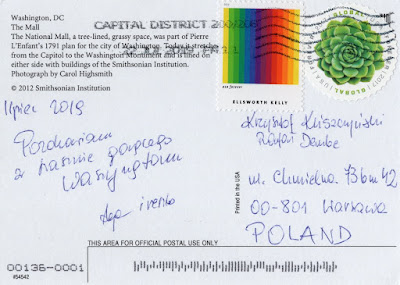 Washington, DC
The Mall
The National Mall, a tree-lined, grassy space, was part of Pierre
L'Enfant's 1791 plan for the city of Washington. Today is stretches
from the Capitol to the Washington Monument and is lined on
either side with buildings of the Smithsonian Institution.
Photograph by Carol Highsmith
© 2012 Smithsonian Institution
CAPITAL DISTRICT 200/208
USA FOREVER
ELLSWORTH KELLY
GLOBAL
lipiec 2019
Pozdrawiam
z
gorącego
Waszyngtonu
Krzysztof
Rafał
ul. Chmielna 73b m 42
00-801 Warszawa
POLAND
Printed in the USA
THIS AREA FOR OFFICIAL POSTAL USE ONLY
00136-0001
#54542